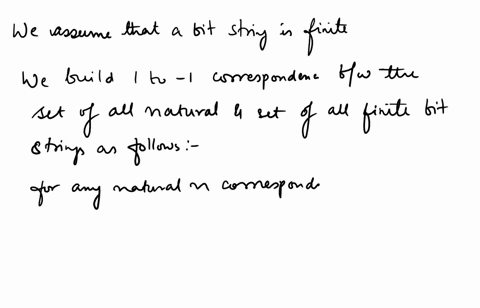 We assume that a bit string is finite
We build 1 to -1 correspondence b/w the
set of all natural & set of all finite bit
strings as follows:-
for any natural n correspond